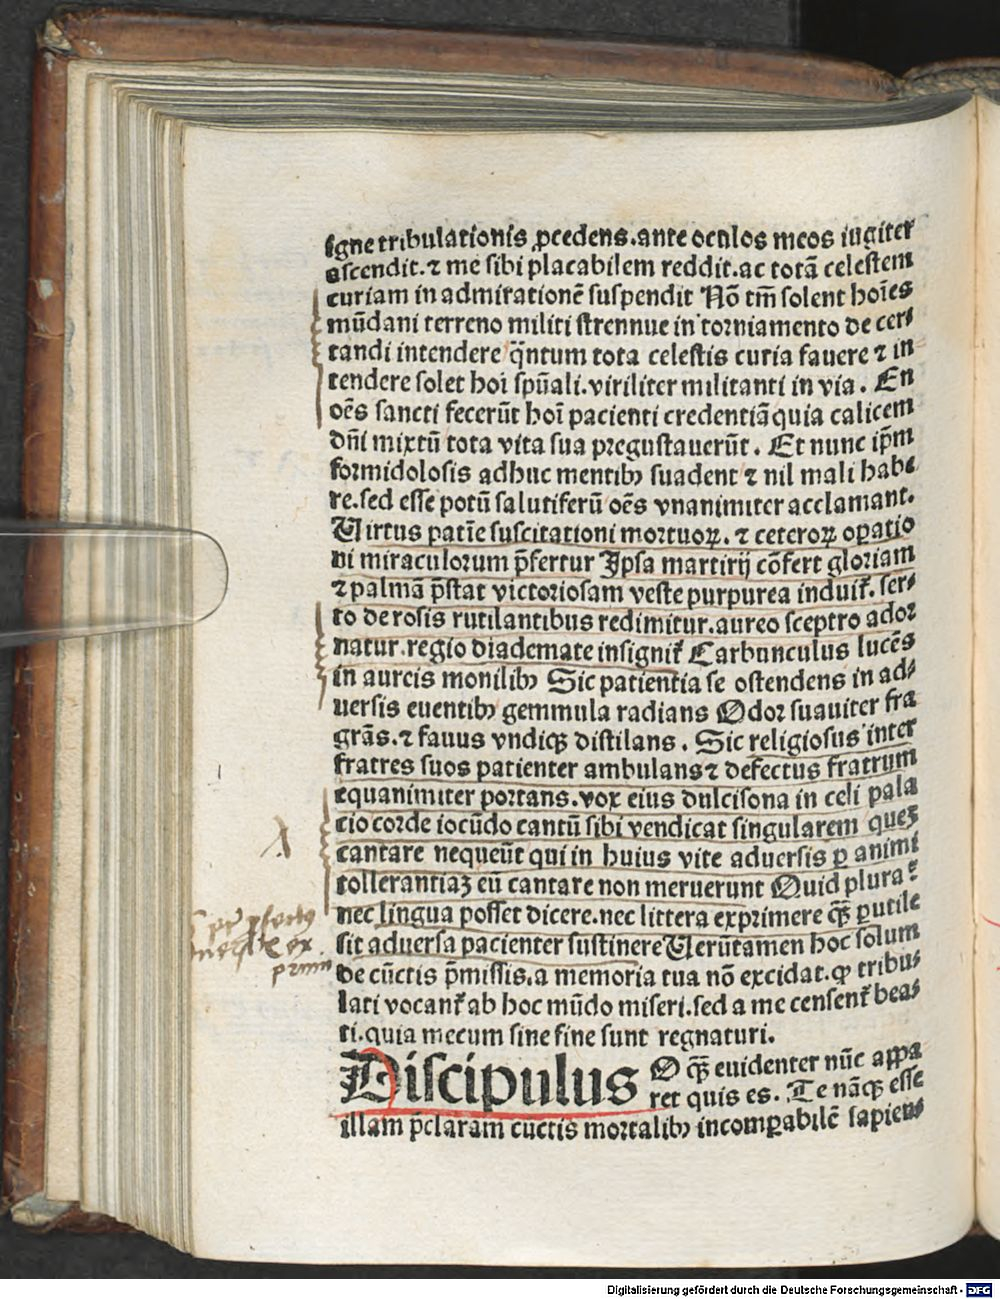 igne tribulationis ꝓcedens.ante oculos meos iugiter
ascendit.⁊ me sibi placabilem reddit.ac totã celestem
curiam in admirationẽ suspendit Nõ tm̃ solent hoĩes
mũdani terreno militi strennue in torniamento de cer⸗
tandi intendere q̃ntum tota celestis curia fauere ⁊ in
tendere solet hoĩ spũali.viriliter militanti in via. En
oẽs sancti fecerũt hoĩ pacienti credentiã quia calicem
dñi mixtũ tota vita sua pregustauerũt. Et nunc ip̃m
formidolosis adhuc mentibꝫ suadent ⁊ nil mali habe
re.sed esse potũ salutiferũ oẽs vnanimiter acclamant.
Uirtus patĩe suscitationi mortuoꝝ.⁊ ceteroꝝ oꝑatio
ni miraculorum p̃fertur Ipsa martirij cõfert gloriam
⁊ palmã p̃stat victoriosam veste purpurea induit᷑.ser⸗
to de rosis rutilantibus redimitur.aureo sceptro ador
natur.regio diademate insignit᷑ Carbunculus lucẽs
in aureis monilibꝫ Sic patientia se ostendens in ad⸗
uersis euentibꝫ gemmula radians Odor suauiter fra
grãs.⁊ fauus vndiqꝫ distilans. Sic religiosus inter
fratres suos patienter ambulans ⁊ defectus fratrum
equanimiter portans.vox eius dulcisona in celi pala
cio corde iocũdo cantũ sibi vendicat singularem queꝫ
cantare nequeũt qui in huius vite aduersis ꝑ animi
tollerantiaꝫ eũ cantare non meruerunt Quid plura ⁊
nec lingua posset dicere.nec littera exprimere qꝫ̃ ꝑutile
sit aduersa pacienter sustinere Uerũtamen hoc solum
de cũctis p̃missis.a memoria tua nõ excidat.ꝙ tribu⸗
lati vocant᷑ ab hoc mũdo miseri.sed a me censent᷑ bea⸗
ti.quia mecum sine fine sunt regnaturi.
Discipulus O qꝫ̃ euidenter nũc appa
ret quis es. Te nãqꝫ esse
illam p̃claram cuctis mortalibꝫ incomꝑabilẽ sapiens
Digitalisierung gefördert durch die Deutsche Forschungsgemeinschaft - DFG